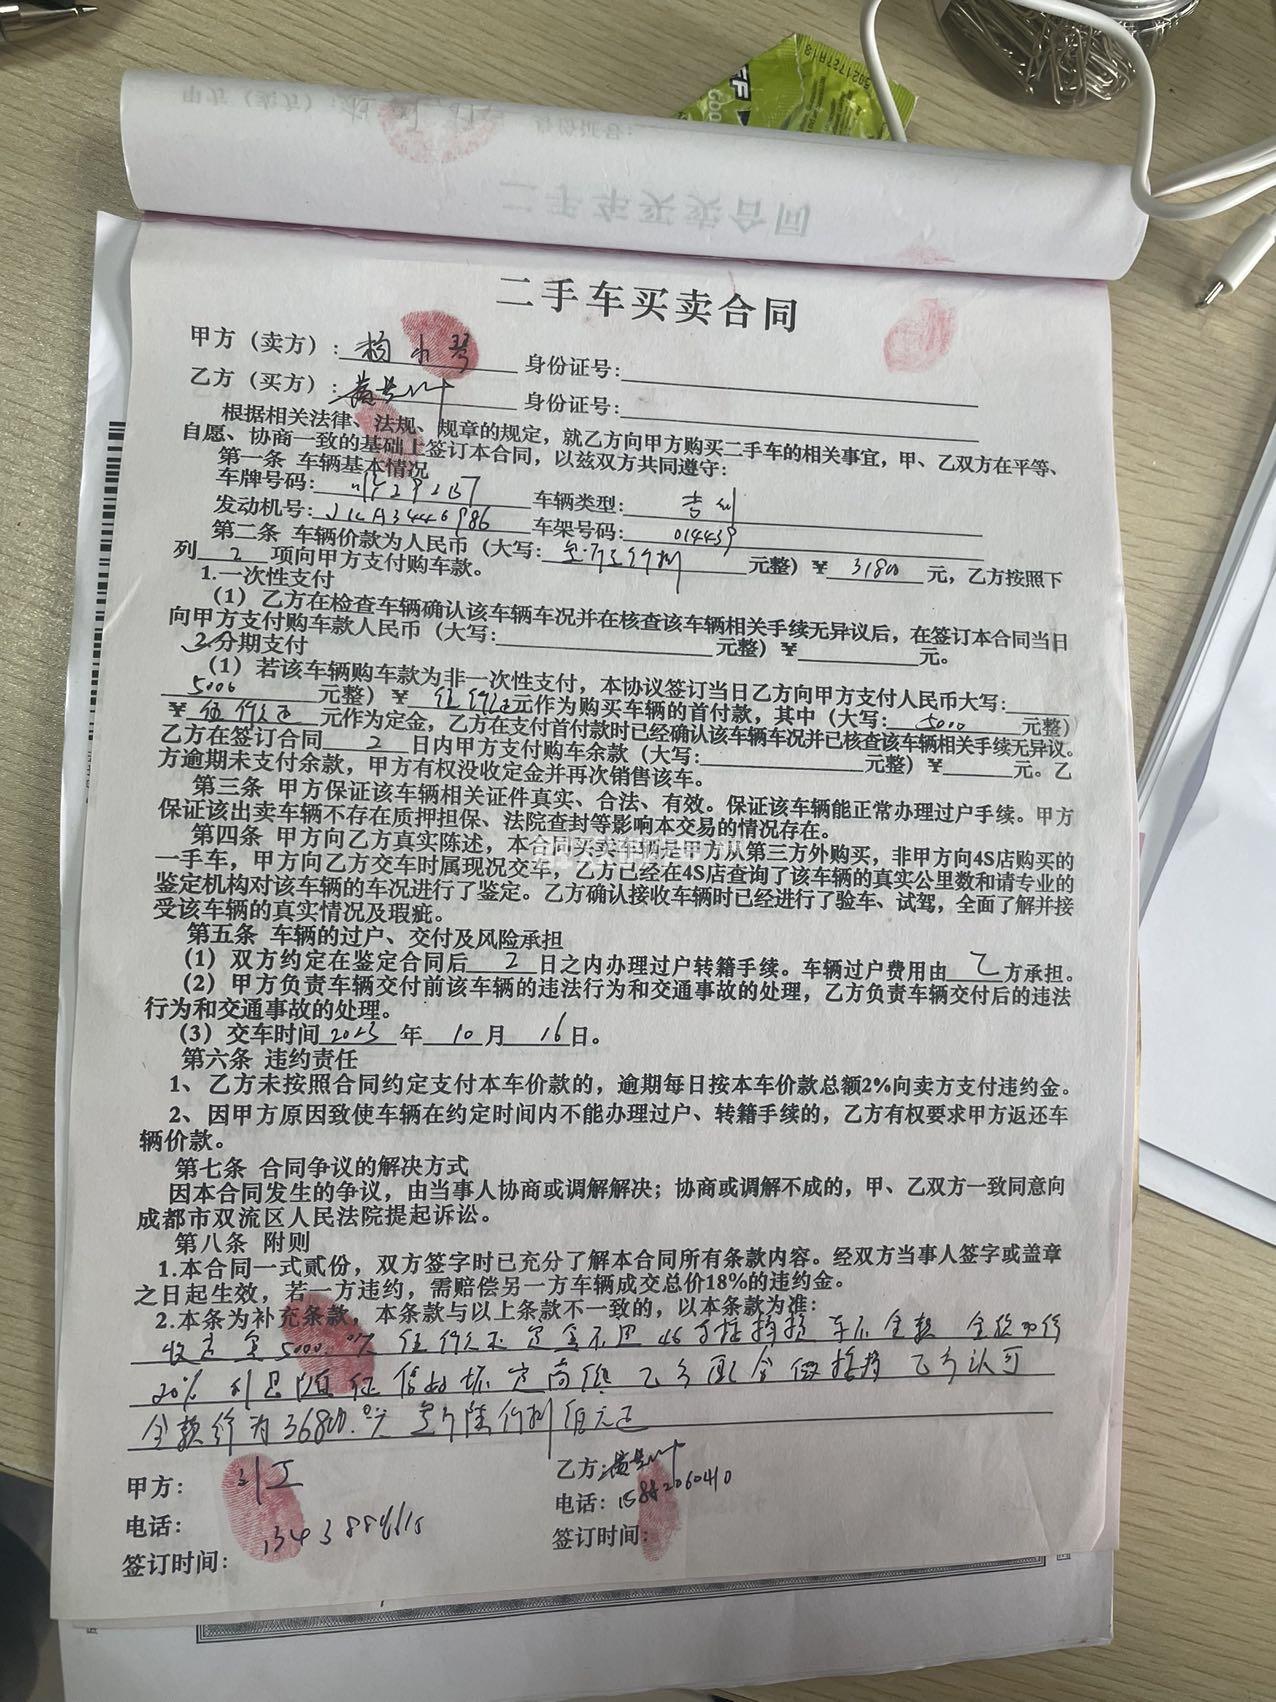 二手车买卖合同
二手车买卖合同
甲方（卖方）： 身份证号：
乙方（买方）： 身份证号：
根据相关法律、法规、规章的规定，就乙方向甲方购买二手车的相关事宜，甲、乙双方在平等、
自愿、协商一致的基础上签订本合同，以兹双方共同遵守：
第一条 车辆基本情况
车牌号码： 车辆类型：
发动机号： 车架号码：014439
第二条 车辆价款为人民币（大写： 元整）￥31800元，乙方按照下
列2项向甲方支付购车款。
1.一次性支付
（1）乙方在检查车辆确认该车辆车况并在核查该车辆相关手续无异议后，在签订本合同当日
向甲方支付购车款人民币（大写： 元整）￥ 元。
2.分期支付
（1）若该车辆购车款为非一次性支付，本协议签订当日乙方向甲方支付人民币大写：
5000元整）￥ 元作为购买车辆的首付款，其中（大写：5000元整）
￥ 元作为定金，乙方在支付首付款时已经确认该车辆车况并已核查该车辆相关手续无异议。
乙方在签订合同2日内甲方支付购车余款（大写： 元整）￥ 元。乙
方逾期未支付余款，甲方有权没收定金并再次销售该车。
第三条 甲方保证该车辆相关证件真实、合法、有效。保证该车辆能正常办理过户手续。甲方
保证该出卖车辆不存在质押担保、法院查封等影响本交易的情况存在。
第四条 甲方向乙方真实陈述，本合同买卖车辆是甲方从第三方外购买，非甲方向4S店购买的
一手车，甲方向乙方交车时属现况交车，乙方已经在4S店查询了该车辆的真实公里数和请专业的
鉴定机构对该车辆的车况进行了鉴定。乙方确认接收车辆时已经进行了验车、试驾，全面了解并接
受该车辆的真实情况及瑕疵。
第五条 车辆的过户、交付及风险承担
（1）双方约定在鉴定合同后2日之内办理过户转籍手续。车辆过户费用由乙方承担。
（2）甲方负责车辆交付前该车辆的违法行为和交通事故的处理，乙方负责车辆交付后的违法
行为和交通事故的处理。
（3）交车时间2023年10月16日。
第六条 违约责任
1、乙方未按照合同约定支付本车价款的，逾期每日按本车价款总额2%向卖方支付违约金。
2、因甲方原因致使车辆在约定时间内不能办理过户、转籍手续的，乙方有权要求甲方返还车
辆价款。
第七条 合同争议的解决方式
因本合同发生的争议，由当事人协商或调解解决；协商或调解不成的，甲、乙双方一致同意向
成都市双流区人民法院提起诉讼。
第八条 附则
1.本合同一式贰份，双方签字时已充分了解本合同所有条款内容。经双方当事人签字或盖章
之日起生效，若一方违约，需赔偿另一方车辆成交总价18%的违约金。
2.本条为补充条款，本条款与以上条款不一致的，以本条款为准：
收定金5000.00元 定金不退
20% 利息随征信 乙方配合做按揭 乙方认可
全款价为36800.00元
甲方： 乙方：
电话： 电话：15882060410
签订时间： 签订时间：